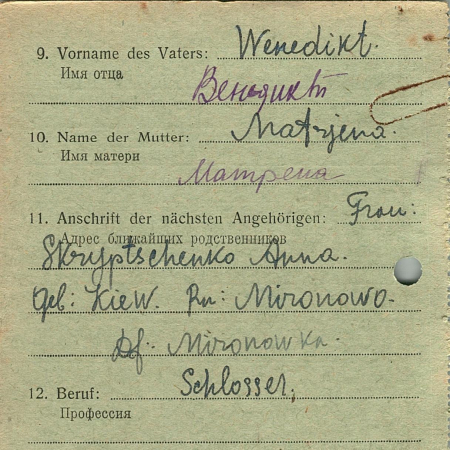 9. Vorname des Vaters: Wenedikt.
Имя отца
Венедиктъ
10. Name der Mutter: Matrjena.
Имя матери
Матрена
11. Anschrift der nächsten Angehörigen: Frau:
Адрес ближайших родственников
Skryptschenko Anna.
Geb: Kiew. Rn: Mironowo-
Df. Mironowka.
12. Beruf: Schlosser,
Профессия